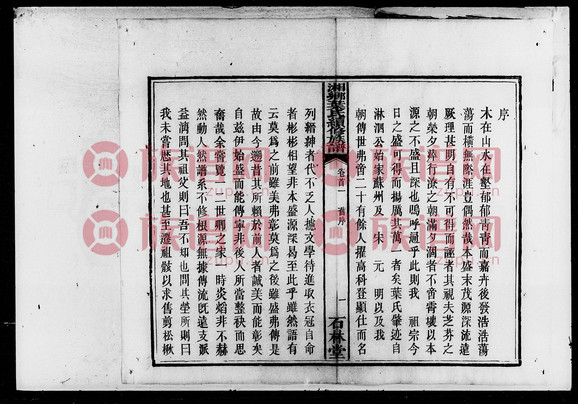 序
木在山水在壑郁郁靑靑而嘉卉後發浩浩蕩
蕩而橫無際涯豈偶然哉本盛末茂源深流遠
厥理甚明自有不可得而誣者其視夫芝芬之
朝榮夕瘁行潦之朝滿夕涸者不啻霄壤以本
源之不盛且深也嗚呼遡乎此則我 祖宗今
日之盛可得而揚厲其萬一者矣葉氏肇迹自
淋泗公始家蘇州及 宋 元 明以及我
朝傳世弗啻二十有餘人擢高科登顯仕而名
湘鄉葉氏續修族譜 卷首一 舊序 一 石林堂
列縉紳者代不乏人摭文學待進取衣冠自命
者彬彬相望非本盛源深曷至此乎雖然語有
云莫爲之前雖美弗彰莫爲之後雖盛弗傳是
故由今遡昔其所賴於前人者誠美而能彰矣
自茲伊始盛而能傳寧非後人所當整袂而思
奮哉余嘗覽二世卿之家一時炎焰非不赫
然動人然譜系不修根源無據傳流旣遠支派
益淆問其祖父則曰吾不知也問其塋所則曰
我未嘗歷其地也甚至遷祖骸以求售剪松楸
族譜网